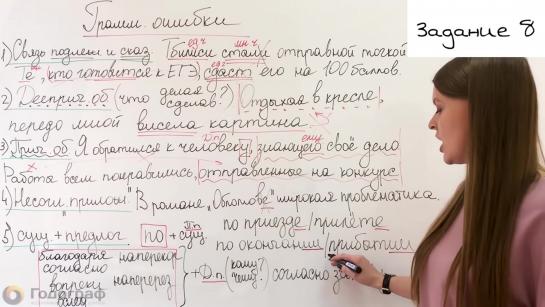 Задание 8
Грамм. ошибки
1) Связь подлеж и сказ. Тбилиси стали отправной точкой
ед ч мн. ч
Те, кто готовится к ЕГЭ, сдаст его на 100 баллов.
ед ч
2) Дееприч. об (что делая? сделав?) Отдыхая в кресле,
передо мной висела картина.
3) Прич. об Я обратился к человеку, знающего своё дело
Д.п ему
Работы всем понравились, отправленные на конкурс
4) Несогл. прилож. В романе "Обломове" широкая проблематика.
5) сущ. + предлог. ПО + сущ. П.п
по приезде / прилёте
по окончании / прибытии
благодаря наперекор
согласно
вопреки наперерез
+ Д.п (кому? чему?) согласно
Годограф